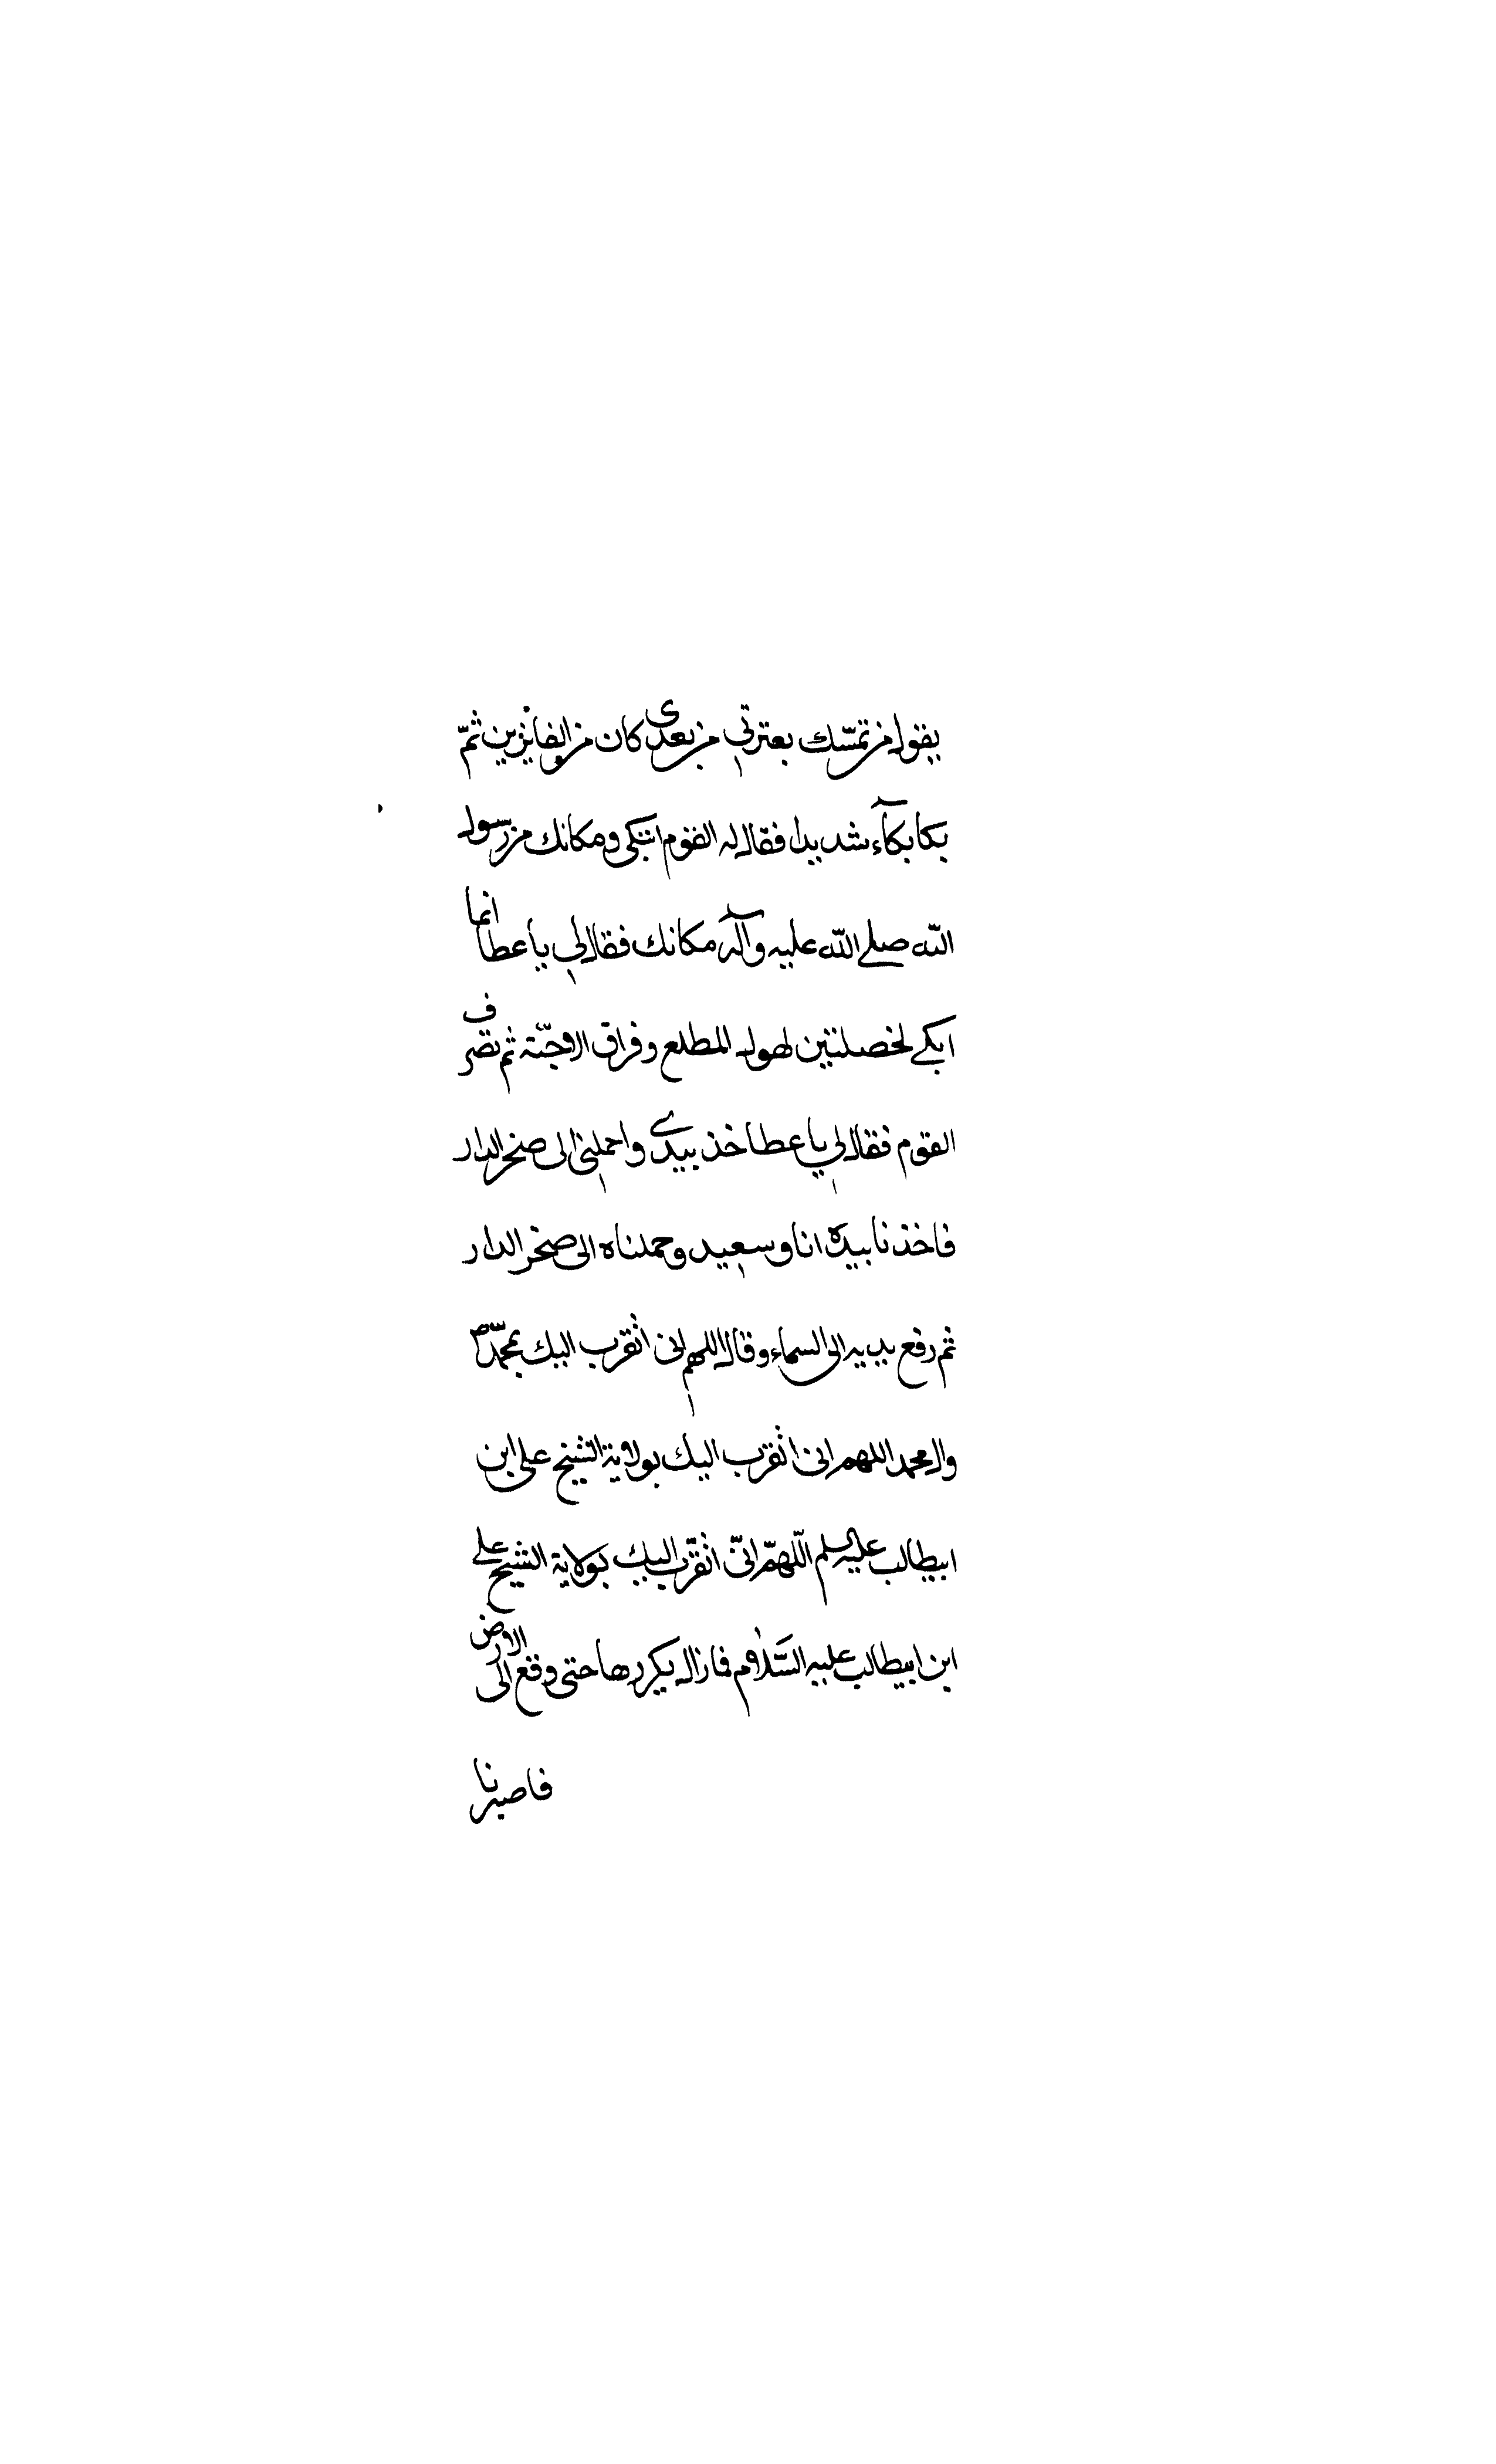 يقول من تمسّك بعترتي من بعدى كان من الفايزين ثمّ
بكا بكآء شديدا فقال له القوم اتبكى ومكانك من رسول
اللّه صلى اللّه عليه وآله مكانك فقال لي يا عطا انما
ابكي لخصلتين لهول المطلع وفراق الاحبّة ثم تصرف
القوم فقال لي يا عطا خذ بيدي واحملني الى صحن الدار
فاخذنا بيده انا وسعيد وحملناه الى صحن الدار
ثم رفع يديه الى السماء وقال اللهم انى اتقرب اليك بمحمد ص
وال محمد اللهم انى اتقرب اليك بولاية الشيخ على ابن
ابيطالب عليه السلم اللّهمّ انىّ اتقرّب اليك بولاية الشيخ علي
ابن ابيطالب عليه السَّلام فما زال يكررها حتى وقع الى الارض
فاصبرنا